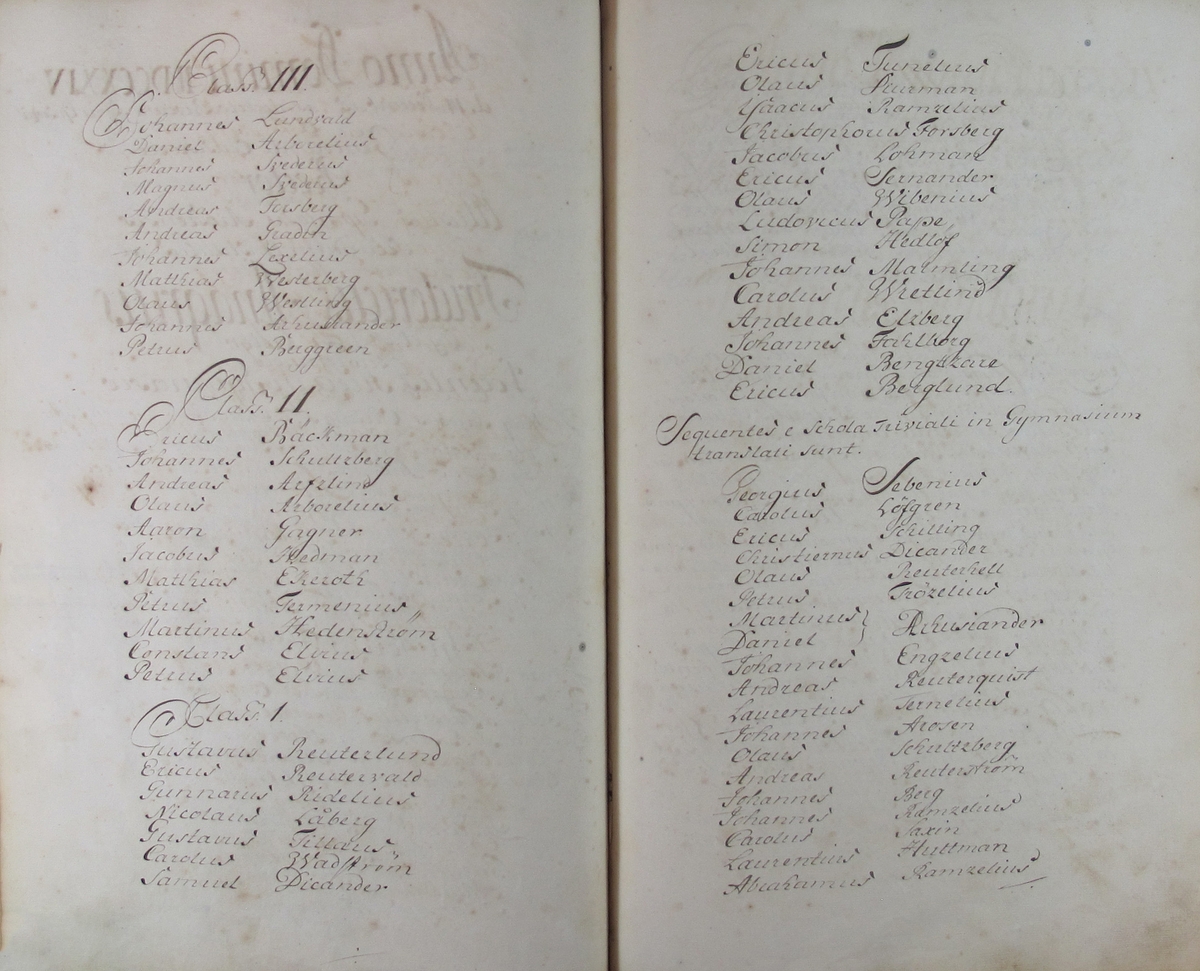 Class. III.
Johannes Lundvald
Daniel Arborelius
Johannes Svederus
Magnus Svederus
Andreas Forsberg
Andreas Gradin
Johannes Lexelius
Matthias Westerberg
Olaus Westling
Johannes Arhusiander
Petrus Berggreen
Class. II.
Ericus Bäckman
Johannes Schultzberg
Andreas
Olaus Arborelius
Aaron Gagner
Jacobus Hedman
Matthias Ekeroth
Petrus Termenius
Martinus Hedenström
Constans Elvius
Petrus Elvius
Class. I.
Gustavus Reuterlund
Ericus Reutervald
Gunnarus Ridelius
Nicolaus Låberg
Gustavus Tillæus
Carolus Wadström
Samuel Dicander
Ericus Tunelius
Olaus Sturman
Ysaacus Ramzelius
Christophorus Forsberg
Jacobus Lohman
Ericus Fernander
Olaus Wibenius
Ludovicus Pape,
Simon Hedlöf
Johannes Malmling
Carolus Wretlind
Andreas Elzberg
Johannes Fahlberg
Daniel Bengtzare
Ericus Berglund.
Sequentes e Schola Triviali in Gymnasium
translati sunt.
Georgius Sebenius
Carolus Löfgren
Ericus Schilling
Christiernus Dicander
Olaus Reuterhell
Petrus Trözelius
Martinus }
Daniel } Arhusiander
Johannes Engzelius
Andreas Reuterquist
Laurentius Fernelius
Johannes Arosen
Olaus Schultzberg
Andreas Reuterström
Johannes Berg
Johannes Ramzelius
Carolus Saxin
Laurentius Huttman
Abrahamus Ramzelius